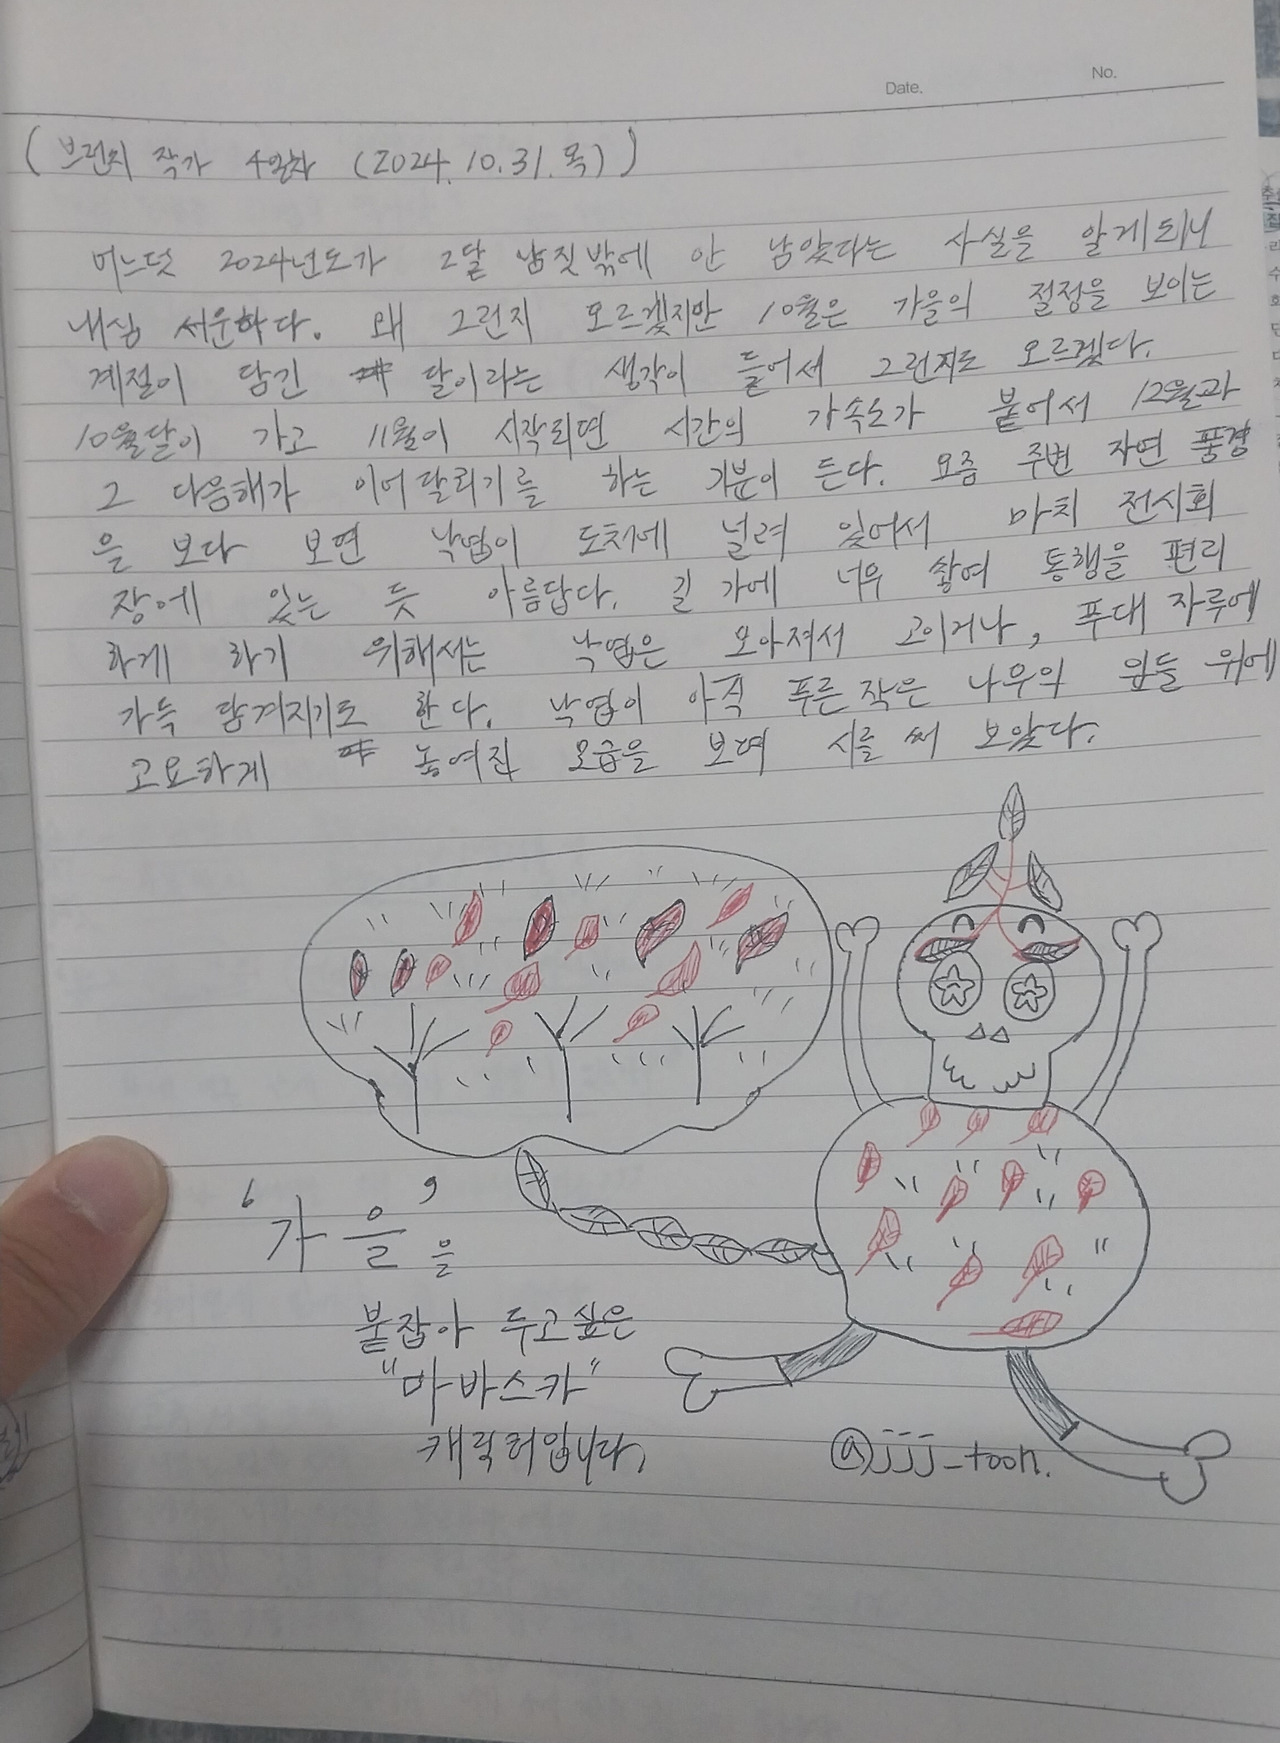 Date.
No.
( 브런치 작가 4일차 (2024.10.31.목) )
어느덧 2024년도가 2달 남짓밖에 안 남았다는 사실을 알게되니
내심 서운하다. 왜 그런지 모르겠지만 10월은 가을의 절정을 보이는
계절이 담긴 달이라는 생각이 들어서 그런지도 모르겠다.
10월달이 가고 11월이 시작되면 시간의 가속도가 붙어서 12월과
그 다음해가 이어달리기를 하는 기분이 든다. 요즘 주변 자연 풍경
을 보다 보면 낙엽이 도처에 널려 있어서 마치 전시회
장에 있는 듯 아름답다. 길 가에 너무 쌓여 통행을 편리
하게 하기 위해서는 낙엽은 모아져서 고이거나, 푸대 자루에
가득 담겨지기도 한다. 낙엽이 아직 푸른 작은 나무의 잎들 위에
고요하게 놓여진 모습을 보며 시를 써 보았다.
'가을'을
붙잡아 두고싶은
"마바스카"
캐릭터입니다.
@jjj_toon.